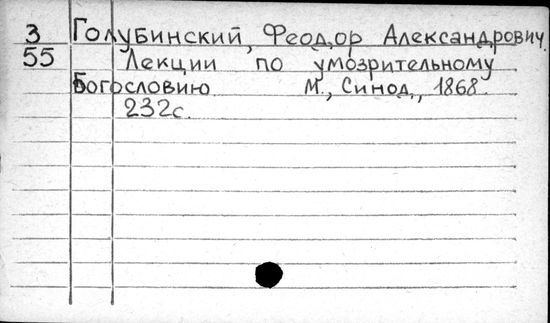 3 Голубинский, Феодор Александрович.
55 Лекции по умозрительному
Богословию М., Синод., 1868.
232с.